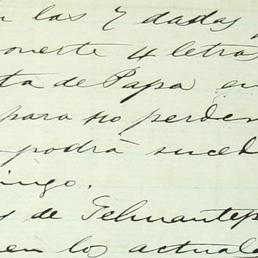 las 7 dadas
ponerte 4 letras
ta de Papa en
para no perder
podrá suced
ingo.
s de Tehuantep
en los actuale